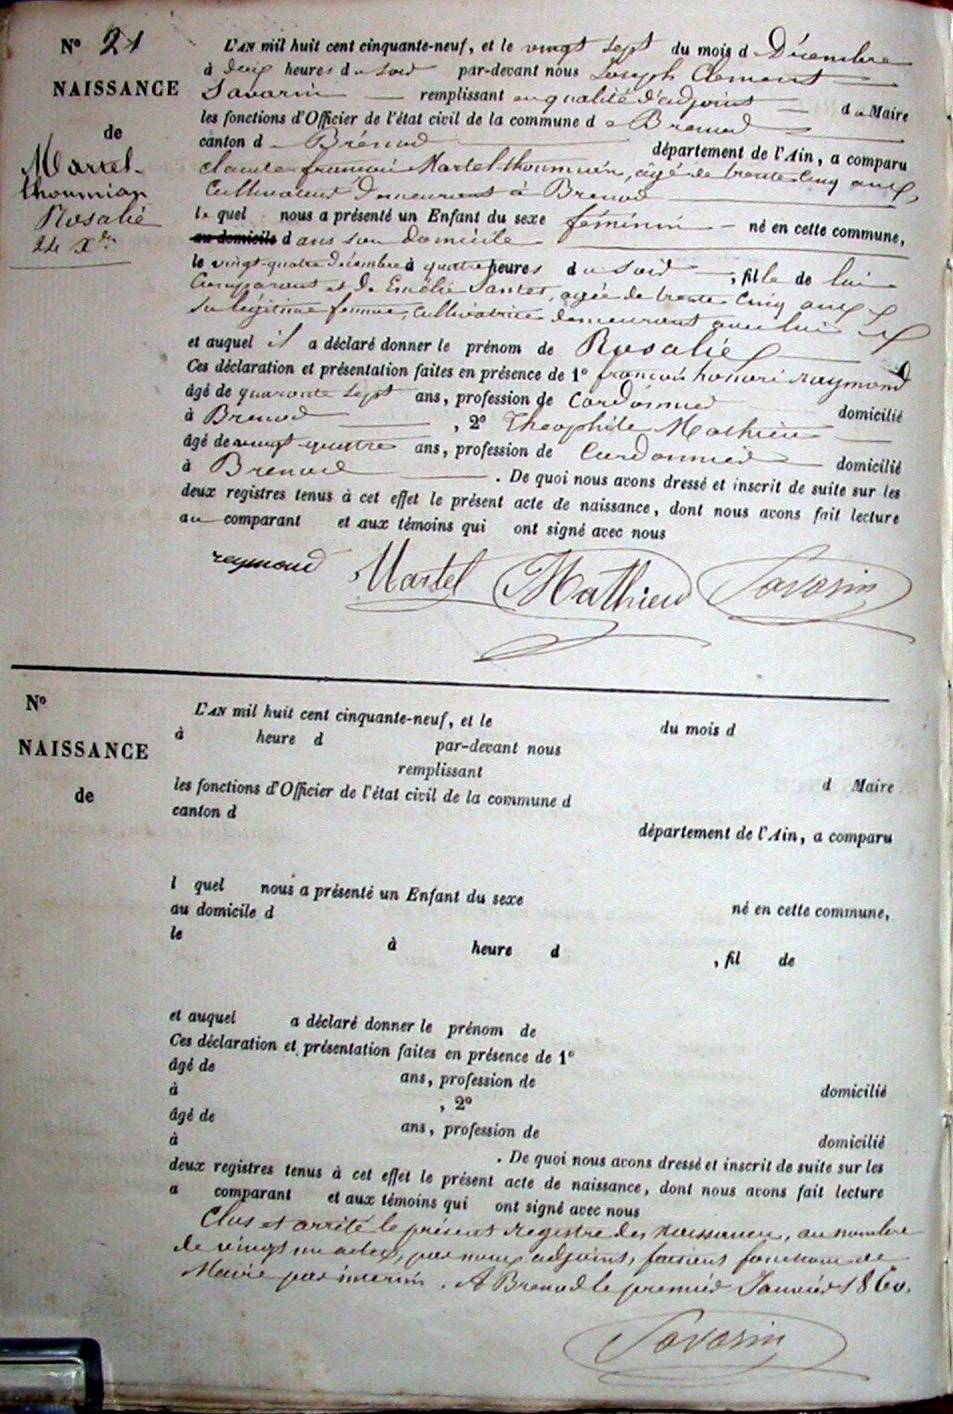 N° 21
NAISSANCE
de
Martel-
thoumian
Rosalie
24 Xbre
L'AN mil huit cent cinquante-neuf, et le vingt sept du mois de Décembre
à deux heures du soir par-devant nous Joseph Clement
Savarin remplissant en qualité d'adjoint du Maire
les fonctions d'Officier de l'état civil de la commune de Brenod
canton de Brénod département de l'Ain, a comparu
claude françois Martel-thoumian, âgé de trente cinq ans,
Cultivateur demeurant à Brenod
lequel nous a présenté un Enfant du sexe féminin né en cette commune,
au domicile dans son domicile
le vingt-quatre décembre à quatre heures du soir, fille de lui
Comparant et de Emélie Santer, agée de trente cinq ans
sa légitime femme, cultivatrice demeurant avec lui
et auquel il a déclaré donner le prénom de Rosalie
Ces déclaration et présentation faites en présence de 1° françois honoré raymond
âgé de quarante sept ans, profession de Cordonnier domicilié
à Brenod, 2° Théophile Mathieu
âgé de vingt quatre ans, profession de Cordonnier domicilié
à Brenod. De quoi nous avons dressé et inscrit de suite sur les
deux registres tenus à cet effet le présent acte de naissance, dont nous avons fait lecture
au comparant et aux témoins qui ont signé avec nous
reymond Martel Mathieu Savarin
N°
NAISSANCE
de
L'AN mil huit cent cinquante-neuf, et le du mois d
à heure d par-devant nous
remplissant d Maire
les fonctions d'Officier de l'état civil de la commune d
canton d département de l'Ain, a comparu
l quel nous a présenté un Enfant du sexe né en cette commune,
au domicile d
le à heure d , fil de
et auquel a déclaré donner le prénom de
Ces déclaration et présentation faites en présence de 1°
âgé de ans, profession de domicilié
à , 2°
âgé de ans, profession de domicilié
à . De quoi nous avons dressé et inscrit de suite sur les
deux registres tenus à cet effet le présent acte de naissance, dont nous avons fait lecture
a comparant et aux témoins qui ont signé avec nous
Clos et arrêté le présent registre des Naissances, au nombre
de vingt un actes, par nous adjoint, faisant fonctions de
Maire par interim. A Brenod le premier Janvier 1860.
Savarin